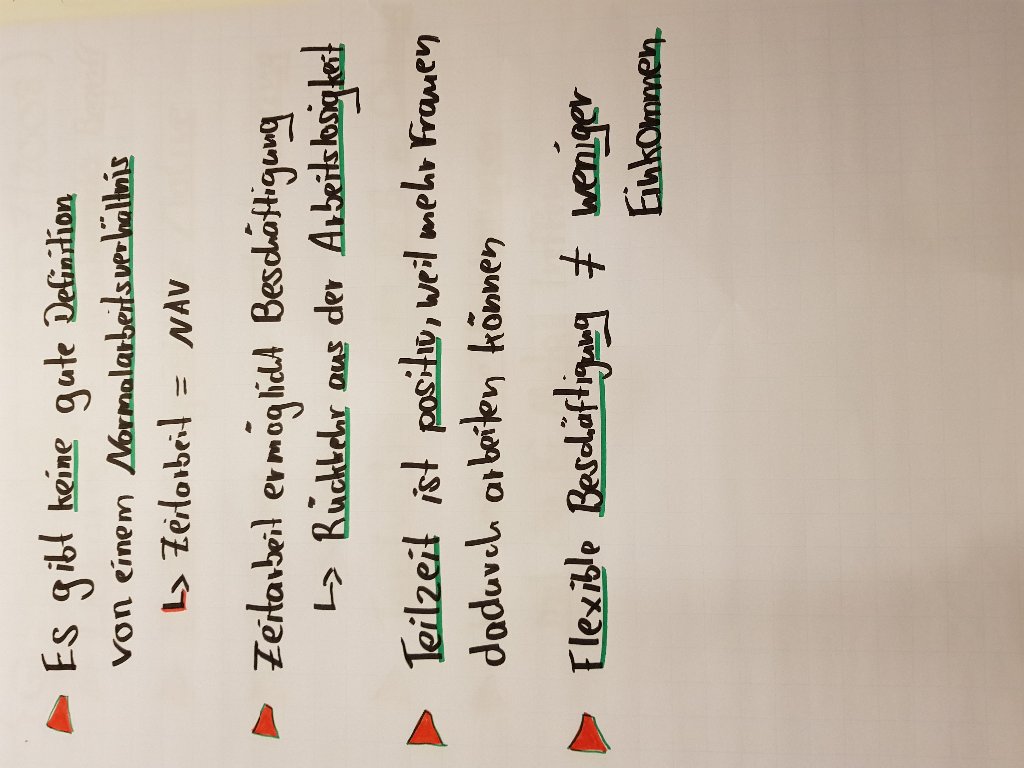 Es gibt keine gute Definition
von einem Normalarbeitsverhältnis
↳ Zeitarbeit = NAV
Zeitarbeit ermöglicht Beschäftigung
↳ Rückkehr aus der Arbeitslosigkeit
Teilzeit ist positiv, weil mehr Frauen
dadurch arbeiten können
Flexible Beschäftigung ≠ weniger
Einkommen